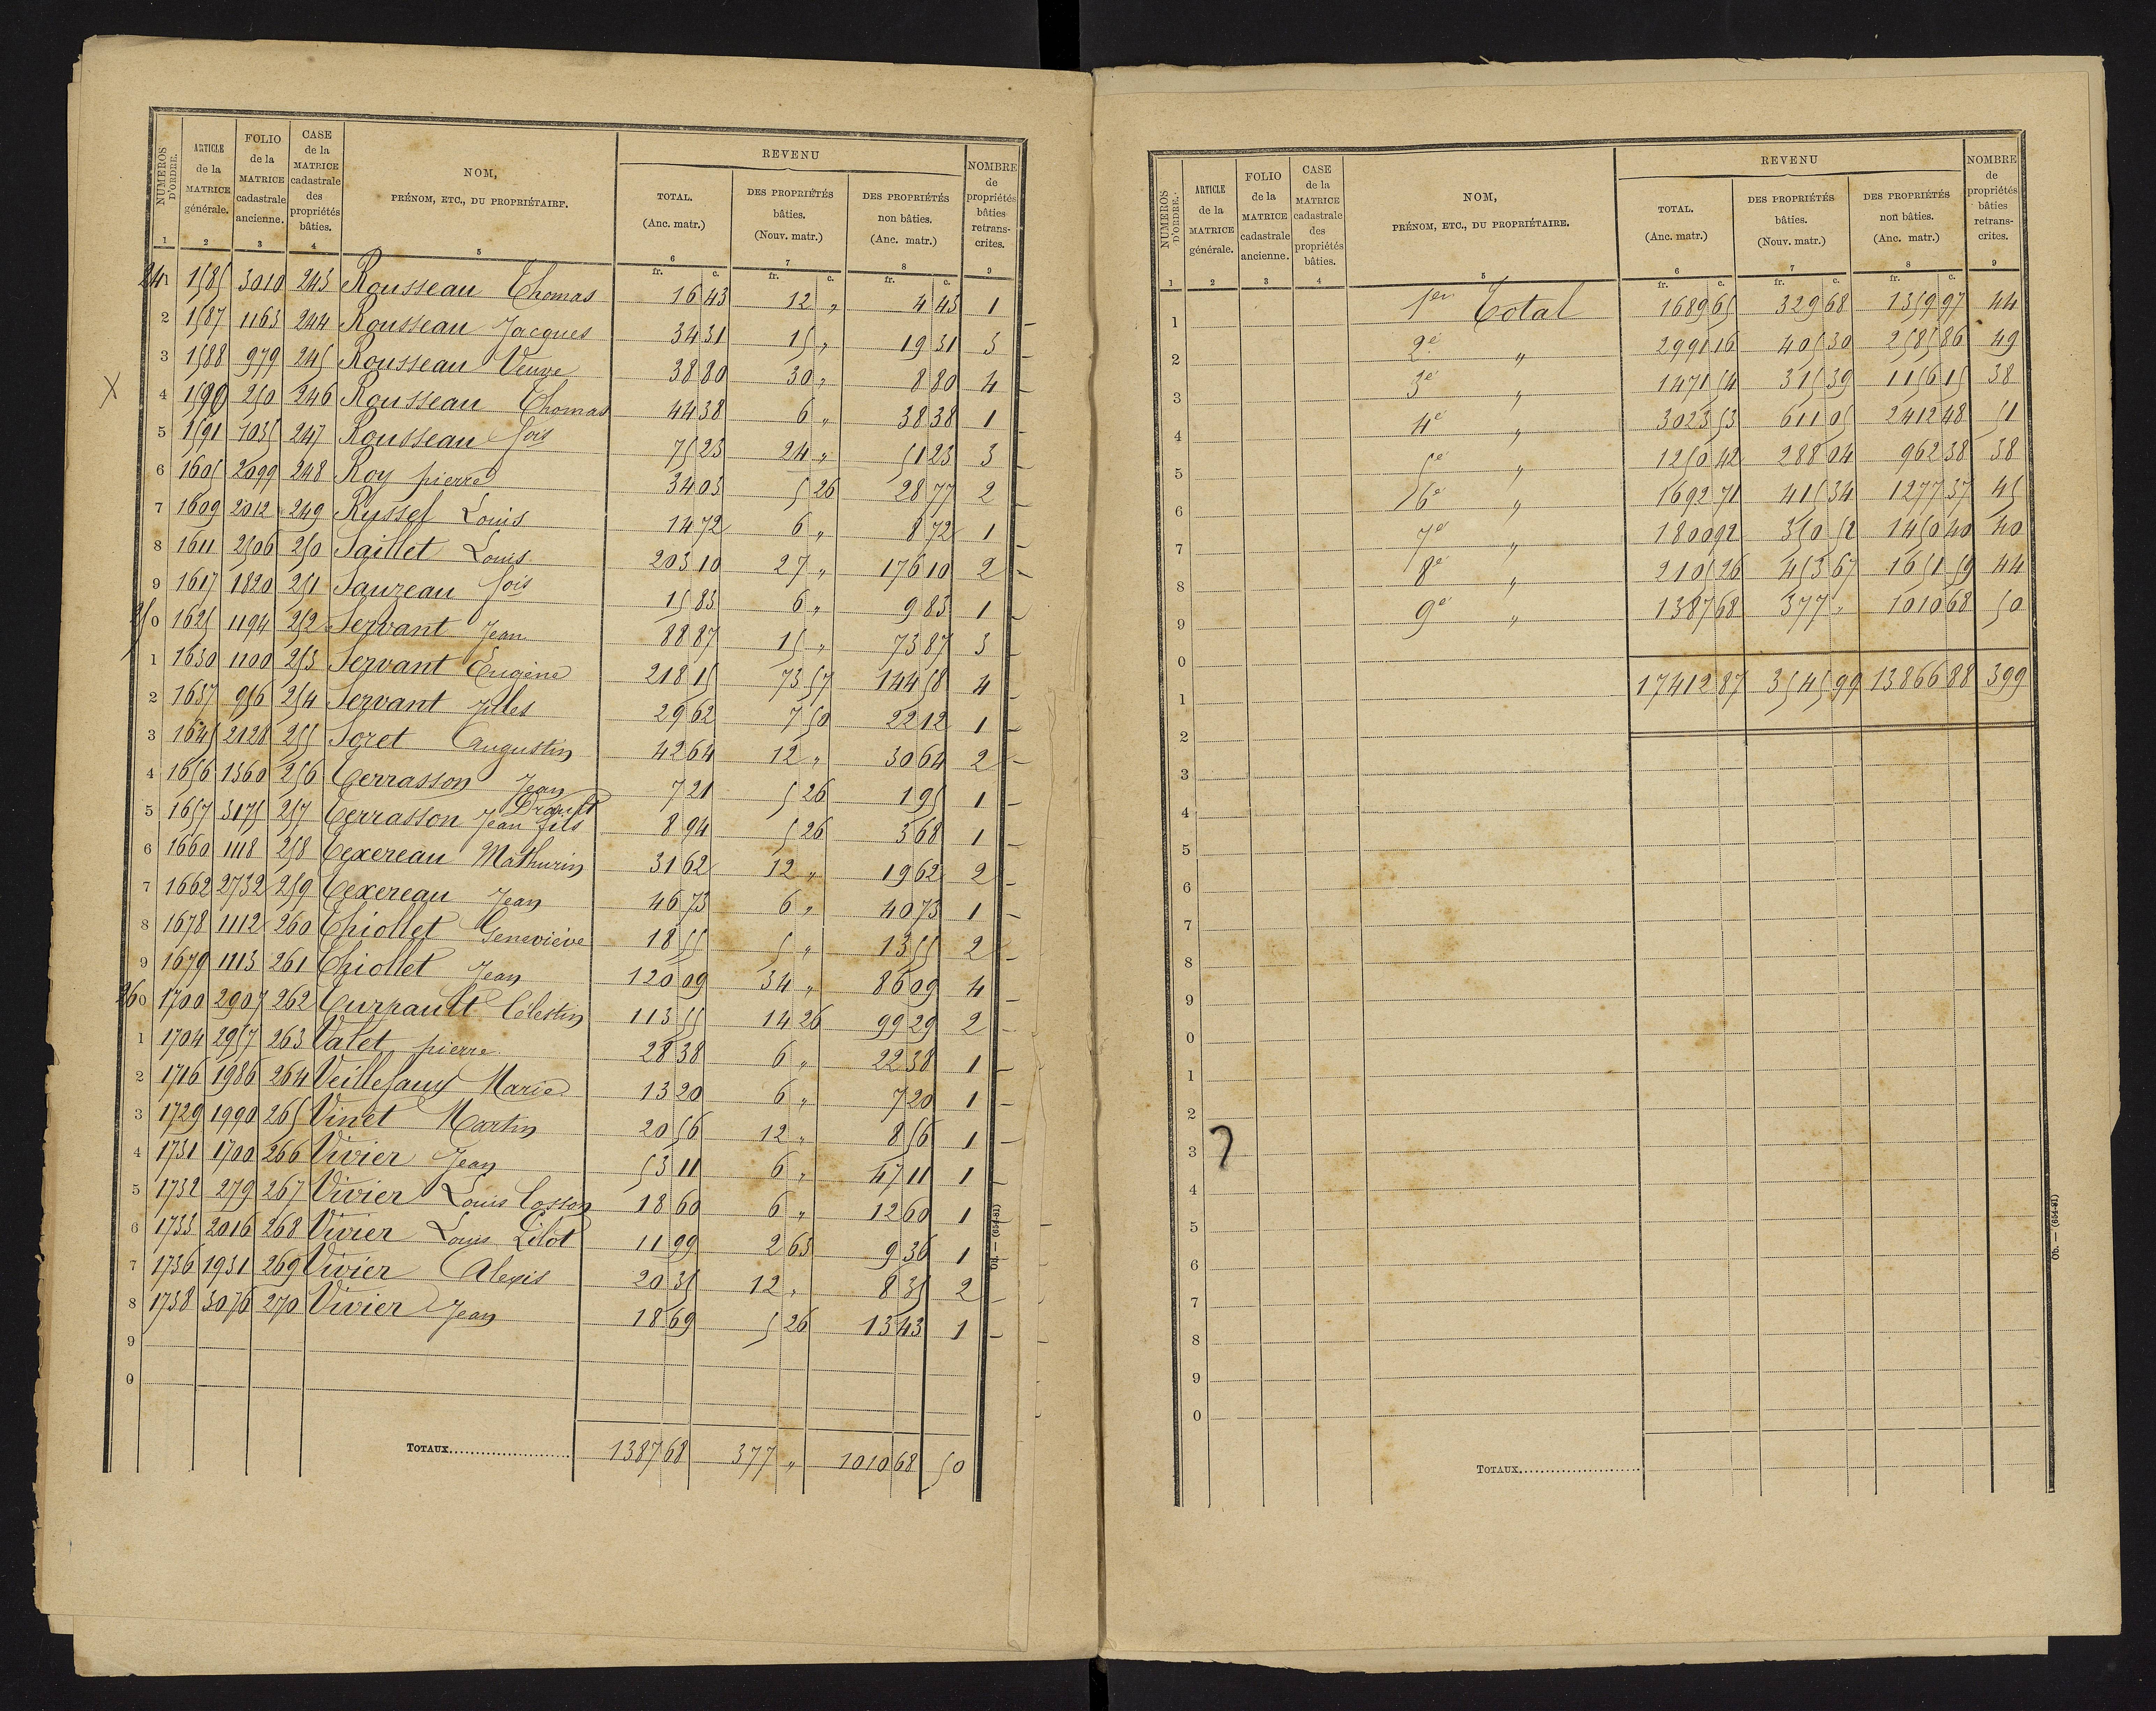 NUMÉROS D'ORDRE. ARTICLE de la MATRICE générale. FOLIO de la MATRICE cadastrale ancienne. CASE de la MATRICE cadastrale des propriétés bâties. NOM, PRÉNOM, ETC., DU PROPRIÉTAIRE. REVENU TOTAL. (Anc. matr.) DES PROPRIÉTÉS bâties. (Nouv. matr.) DES PROPRIÉTÉS non bâties. (Anc. matr.) NOMBRE de propriétés bâties retrans- crites.
1 2 3 4 5 6 7 8 9
fr. c. fr. c. fr. c.
241 1585 3010 243 Rousseau Thomas 16 43 12 " 4 43 1
2 1587 1163 244 Rousseau Jacques 34 31 15 " 19 31 3
3 1588 979 245 Rousseau Veuve 38 80 30 " 8 80 4
X 4 1590 250 246 Rousseau Thomas 44 38 6 " 38 38 1
5 1591 1035 247 Rousseau fois 75 23 24 " 51 23 3
6 1605 2099 248 Roy pierre 34 03 5 26 28 77 2
7 1609 2012 249 Russef Louis 14 72 6 " 8 72 1
8 1611 2506 250 Saillet Louis 203 10 27 " 176 10 2
9 1617 1820 251 Sauzeau fois 15 83 6 " 9 83 1
250 1625 1194 252 Servant Jean 88 87 15 " 73 87 3
1 1630 1100 253 Servant Eugène 218 15 73 57 144 58 4
2 1637 956 254 Servant Jules 29 62 7 50 22 12 1
3 1645 2128 255 Soret Augustin 42 64 12 " 30 64 2
4 1656 1360 256 Terrasson Jean 7 21 5 26 1 95 1
5 1657 3175 257 Terrasson Jean fils 8 94 5 26 3 68 1
6 1660 1118 258 Texereau Mathurin 31 62 12 " 19 62 2
7 1662 2732 259 Texereau Jean 46 73 6 " 40 73 1
8 1678 1112 260 Thiollet Geneviève 18 55 5 " 13 55 2
9 1679 1113 261 Thiollet Jean 120 09 34 " 86 09 4
260 1700 2907 262 Turpault Célestin 113 55 14 26 99 29 2
1 1704 2957 263 Valet pierre 28 38 6 " 22 38 1
2 1716 1986 264 Veillefaux Marie 13 20 6 " 7 20 1
3 1729 1990 265 Vinet Martin 20 56 12 " 8 56 1
4 1731 1700 266 Vivier Jean 53 11 6 " 47 11 1
5 1732 279 267 Vivier Louis Cosson 18 60 6 " 12 60 1
6 1733 2016 268 Vivier Louis Lilot 11 99 2 63 9 36 1
7 1736 1931 269 Vivier Alexis 20 35 12 " 8 35 2
8 1738 3076 270 Vivier Jean 18 69 5 26 13 43 1
9
0
TOTAUX 1387 68 377 " 1010 68 50
Ob. — (654-81)
NUMÉROS D'ORDRE. ARTICLE de la MATRICE générale. FOLIO de la MATRICE cadastrale ancienne. CASE de la MATRICE cadastrale des propriétés bâties. NOM, PRÉNOM, ETC., DU PROPRIÉTAIRE. REVENU TOTAL. (Anc. matr.) DES PROPRIÉTÉS bâties. (Nouv. matr.) DES PROPRIÉTÉS non bâties. (Anc. matr.) NOMBRE de propriétés bâties retrans- crites.
1 2 3 4 5 6 7 8 9
fr. c. fr. c. fr. c.
1 1er Total 1689 65 329 68 1359 97 44
2 2e " 2991 16 405 30 2585 86 49
3 3e " 1471 54 315 39 1156 15 38
4 4e " 3023 53 611 05 2412 48 51
5 5e " 1250 42 288 04 962 38 38
6 6e " 1692 71 415 34 1277 37 45
7 7e " 1800 92 350 52 1450 40 40
8 8e " 2105 26 453 67 1651 59 44
9 9e " 1387 68 377 " 1010 68 50
0
1 17412 87 3545 99 13866 88 399
2
3
4
5
6
7
8
9
0
1
2
3 ?
4
5
6
7
8
9
0
TOTAUX
Ob. — (654-81)